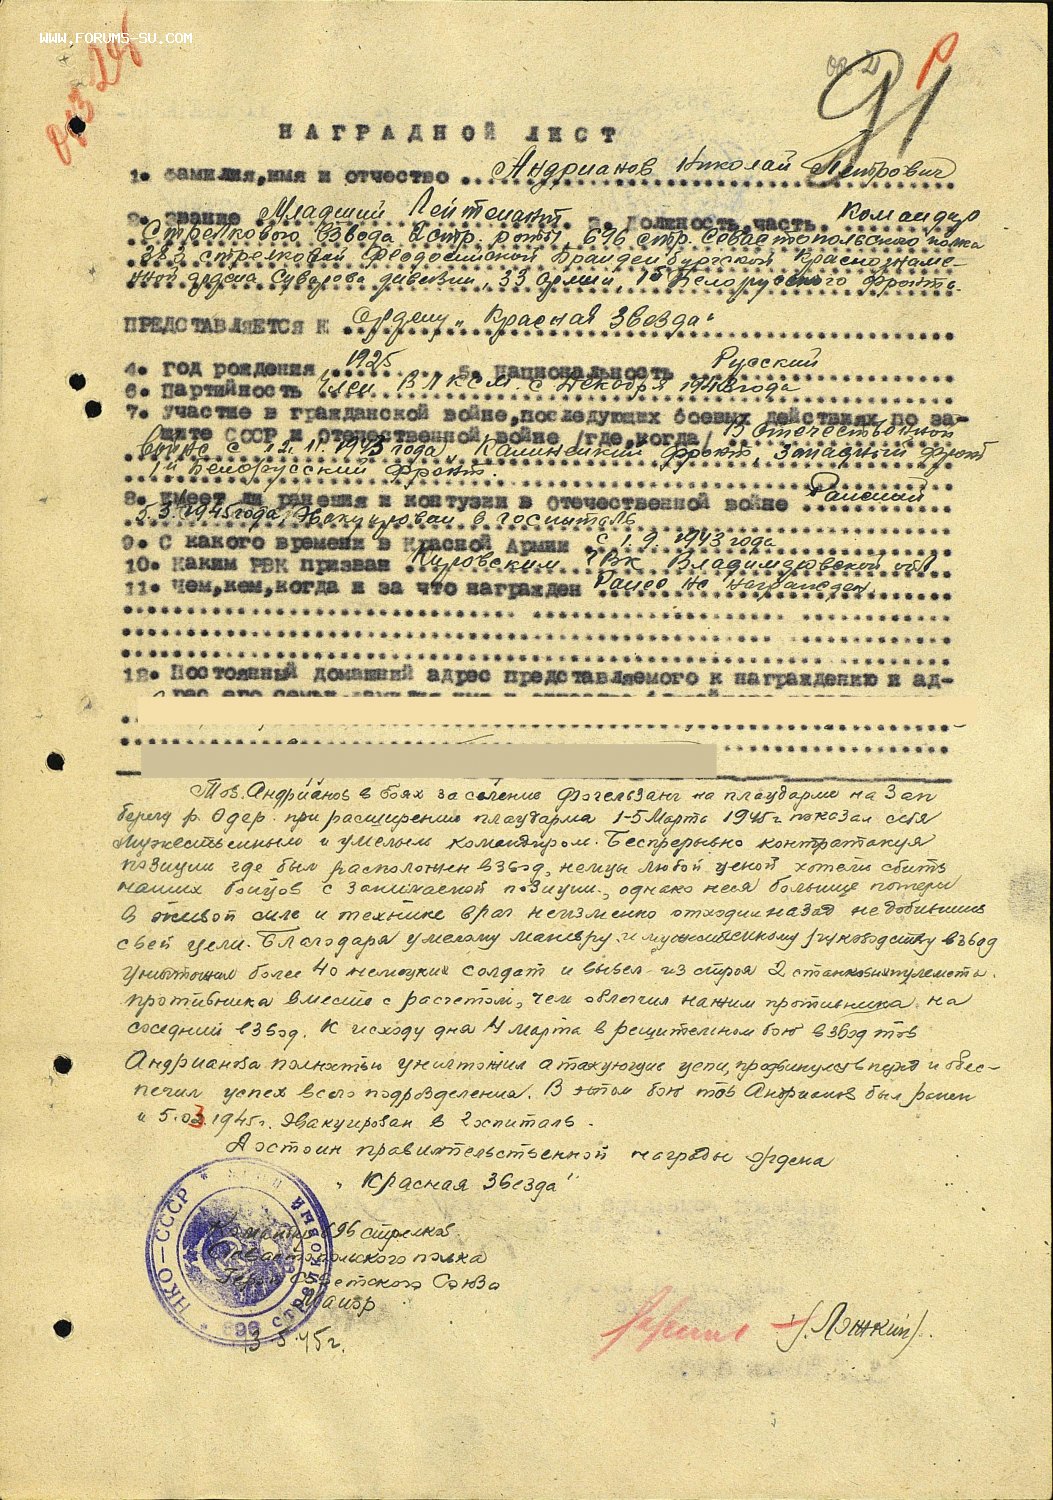 WWW.FORUMS-SU.COM
91
НАГРАДНОЙ ЛИСТ
1. Фамилия, имя и отчество Андрианов Николай Петрович
2. Звание Младший Лейтенант 3. Должность, часть Командир
Стрелкового взвода стр. роты, 696 стр. Севастопольского полка
383 стрелковой Феодосийской Бранденбургской Краснознаме-
нной ордена Суворова дивизии, 33 Армии, 1 Белорусского Фронта.
ПРЕДСТАВЛЯЕТСЯ К Ордену „Красная Звезда"
4. Год рождения 1925 5. Национальность Русский
6. Партийность Член ВЛКСМ с Декабря 1943 года
7. Участие в гражданской войне, последующих боевых действиях по за-
щите СССР и отечественной войне /где, когда/ В Отечественной
войне с 12.11.1943 года, Калининский фронт, Западный фронт
1й Белорусский Фронт.
8. Имеет ли ранения и контузии в отечественной войне Раненый
5.3.1945 года, Эвакуирован в госпиталь
9. С какого времени в Красной Армии с 1.9.1943 года
10. Каким РВК призван Кировским РВК Владимировской обл
11. Чем, кем, когда и за что награжден Ранее не награжден.
12. Постоянный домашний адрес представляемого к награждению и ад-
рес его семьи
Тов. Андрианов в боях за селение Фогельзанг на плацдарме на Зап
берегу р. Одер при расширении плацдарма 1-5 Марта 1945 г показал себя
Мужественным и умелым командиром. Беспрерывно контратакуя
позиции где был расположен взвод, немцы любой ценой хотели сбить
наших бойцов с занимаемой позиции, однако неся большие потери
в живой силе и технике враг неизменно отходил назад не добившись
своей цели. Благодаря умелому маневру и мужественному руководству взвод
уничтожил более 40 немецких солдат и вывел из строя 2 станковых пулемета
противника вместе с расчетом, чем облегчил нажим противника на
соседний взвод. К исходу дня 4 марта в решительном бою взвод тов
Андрианова полностью уничтожил атакующие цепи, продвинулся вперед и обес-
печил успех всего подразделения. В этом бою тов Андрианов был ранен
и 5.03.1945 г. Эвакуирован в госпиталь.
Достоин правительственной награды ордена
„Красная Звезда"
Командир 696 стрелков
Севастопольского полка
Герой Советского Союза
Майор
НКО-СССР
696 стрелковый
/. Лэжкин/.
3.5.45 г.